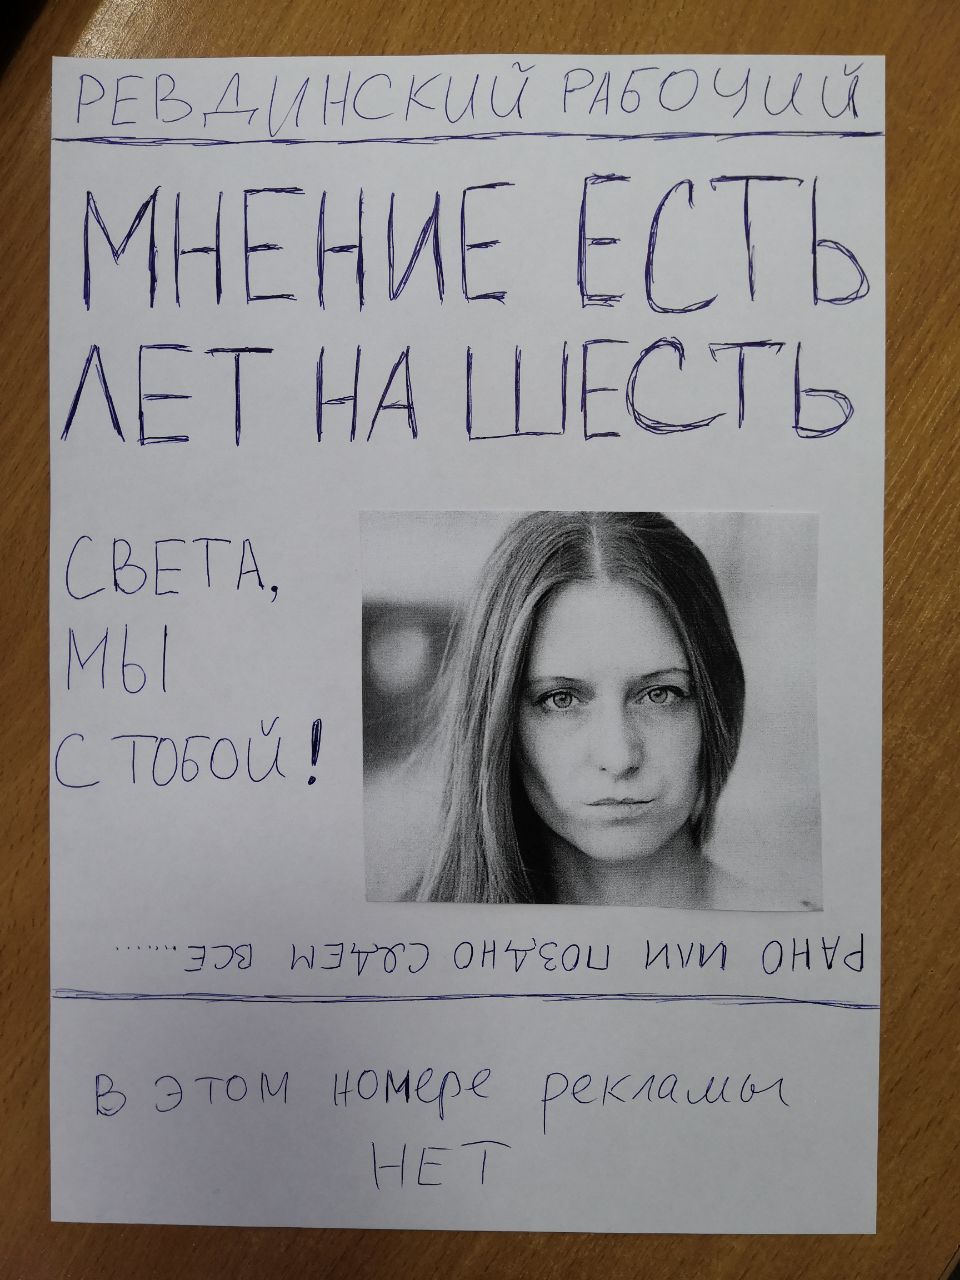 РЕВДИНСКИЙ РАБОЧИЙ
МНЕНИЕ ЕСТЬ
ЛЕТ НА ШЕСТЬ
СВЕТА,
МЫ
С ТОБОЙ!
РАНО ИЛИ ПОЗДНО СЯДЕМ ВСЕ........
В ЭТОМ номере рекламы
НЕТ